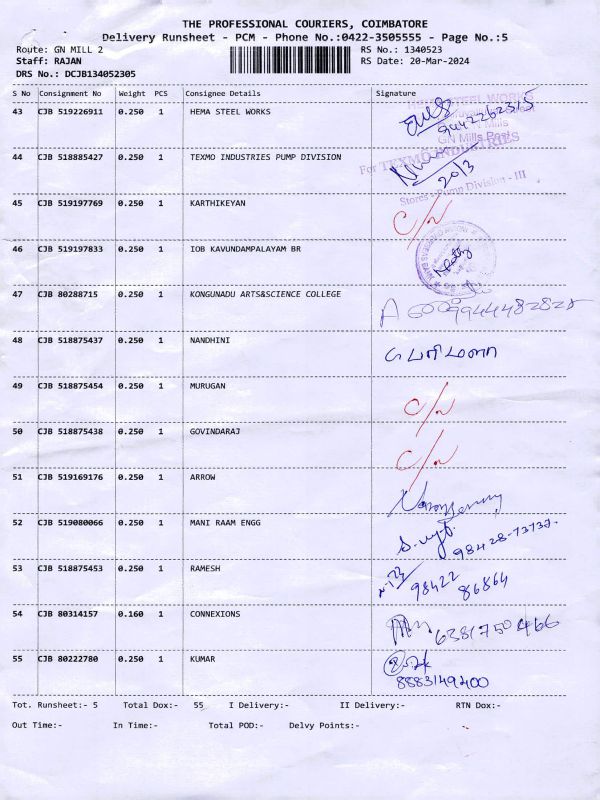 THE PROFESSIONAL COURIERS, COIMBATORE
Delivery Runsheet - PCM - Phone No.:0422-3505555 - Page No.:5
Route: GN MILL 2 RS No.: 1340523
Staff: RAJAN RS Date: 20-Mar-2024
DRS No.: DCJB134052305
S No Consignment No Weight PCS Consignee Details Signature
43 CJB 519226911 0.250 1 HEMA STEEL WORKS 9442262315
GN Mills Post
44 CJB 518885427 0.250 1 TEXMO INDUSTRIES PUMP DIVISION For TEXMO INDUSTRIES
20/3
Stores - Pump Division - III
45 CJB 519197769 0.250 1 KARTHIKEYAN C/N
46 CJB 519197833 0.250 1 IOB KAVUNDAMPALAYAM BR
47 CJB 80288715 0.250 1 KONGUNADU ARTS&SCIENCE COLLEGE 9944482828
48 CJB 518875437 0.250 1 NANDHINI
49 CJB 518875454 0.250 1 MURUGAN C/N
50 CJB 518875438 0.250 1 GOVINDARAJ C/N
51 CJB 519169176 0.250 1 ARROW
52 CJB 519080066 0.250 1 MANI RAAM ENGG
53 CJB 518875453 0.250 1 RAMESH 98422
86864
54 CJB 80314157 0.160 1 CONNEXIONS 6381750466
55 CJB 80222780 0.250 1 KUMAR
8883149200
Tot. Runsheet:- 5 Total Dox:- 55 I Delivery:- II Delivery:- RTN Dox:-
Out Time:- In Time:- Total POD:- Delvy Points:-